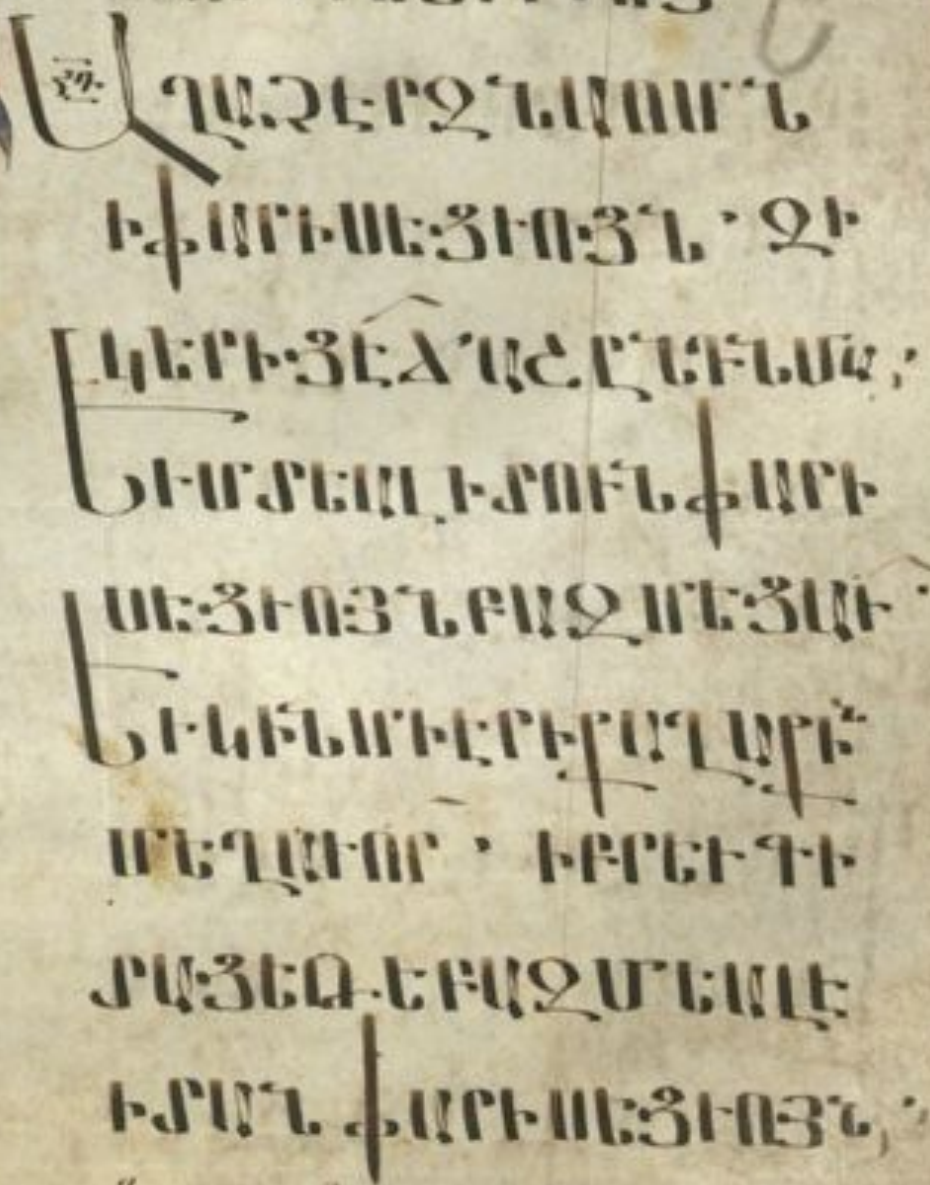 ԱՂԱՉԷՐԶՆԱՈՄՆ
ԻՓԱՐԻՍԵՑՒՈՑՆ · ԶԻ
ԿԵՐԻՑԷՃԱՇԸՆԴՆՄԱ ։
ԵՒՄՏԵԱԼԻՏՈՒՆՓԱՐԻ
ՍԵՑՒՈՅՆԲԱԶՄԵՑԱՒ ·
ԵՒԿԻՆՄԻԷՐԻՔԱՂԱՔԻՆ
ՄԵՂԱՒՈՐ · ԻԲՐԵՒԳԻ
ՏԱՑԵԹԵԲԱԶՄԵԱԼԷ
ԻՏԱՆՓԱՐԻՍԵՑՒՈՅՆ ։